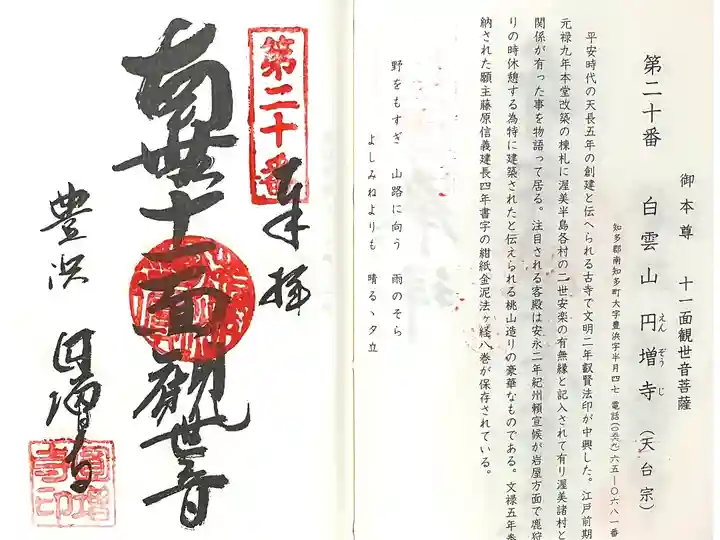 御本尊 十一面観世音菩薩
第二十番 白雲山 円増寺 (天台宗)
えん ぞう じ
知多郡南知多町大字豊浜字半月四七 電話(〇五六九)六五―〇六八一番
平安時代の天長五年の創建と伝へられる古寺で文明二年叡賢法印が中興した。江戸前期
元禄九年本堂改築の棟札に渥美半島各村の二世安楽の有無縁と記入されて有り渥美諸村と
関係が有った事を物語って居る。注目される客殿は安永二年紀州頼宣候が岩屋方面で鹿狩
りの時休憩する為特に建築されたと伝えられる桃山造りの豪華なものである。文禄五年奉
納された願主藤原信義建長四年書字の紺紙金泥法ヶ経八巻が保存されている。
野をもすぎ 山路に向う 雨のそら
よしみねよりも 晴るゝ夕立
第二十番
奉拝
南無十一面観世音
豊浜 円増寺
円増寺印